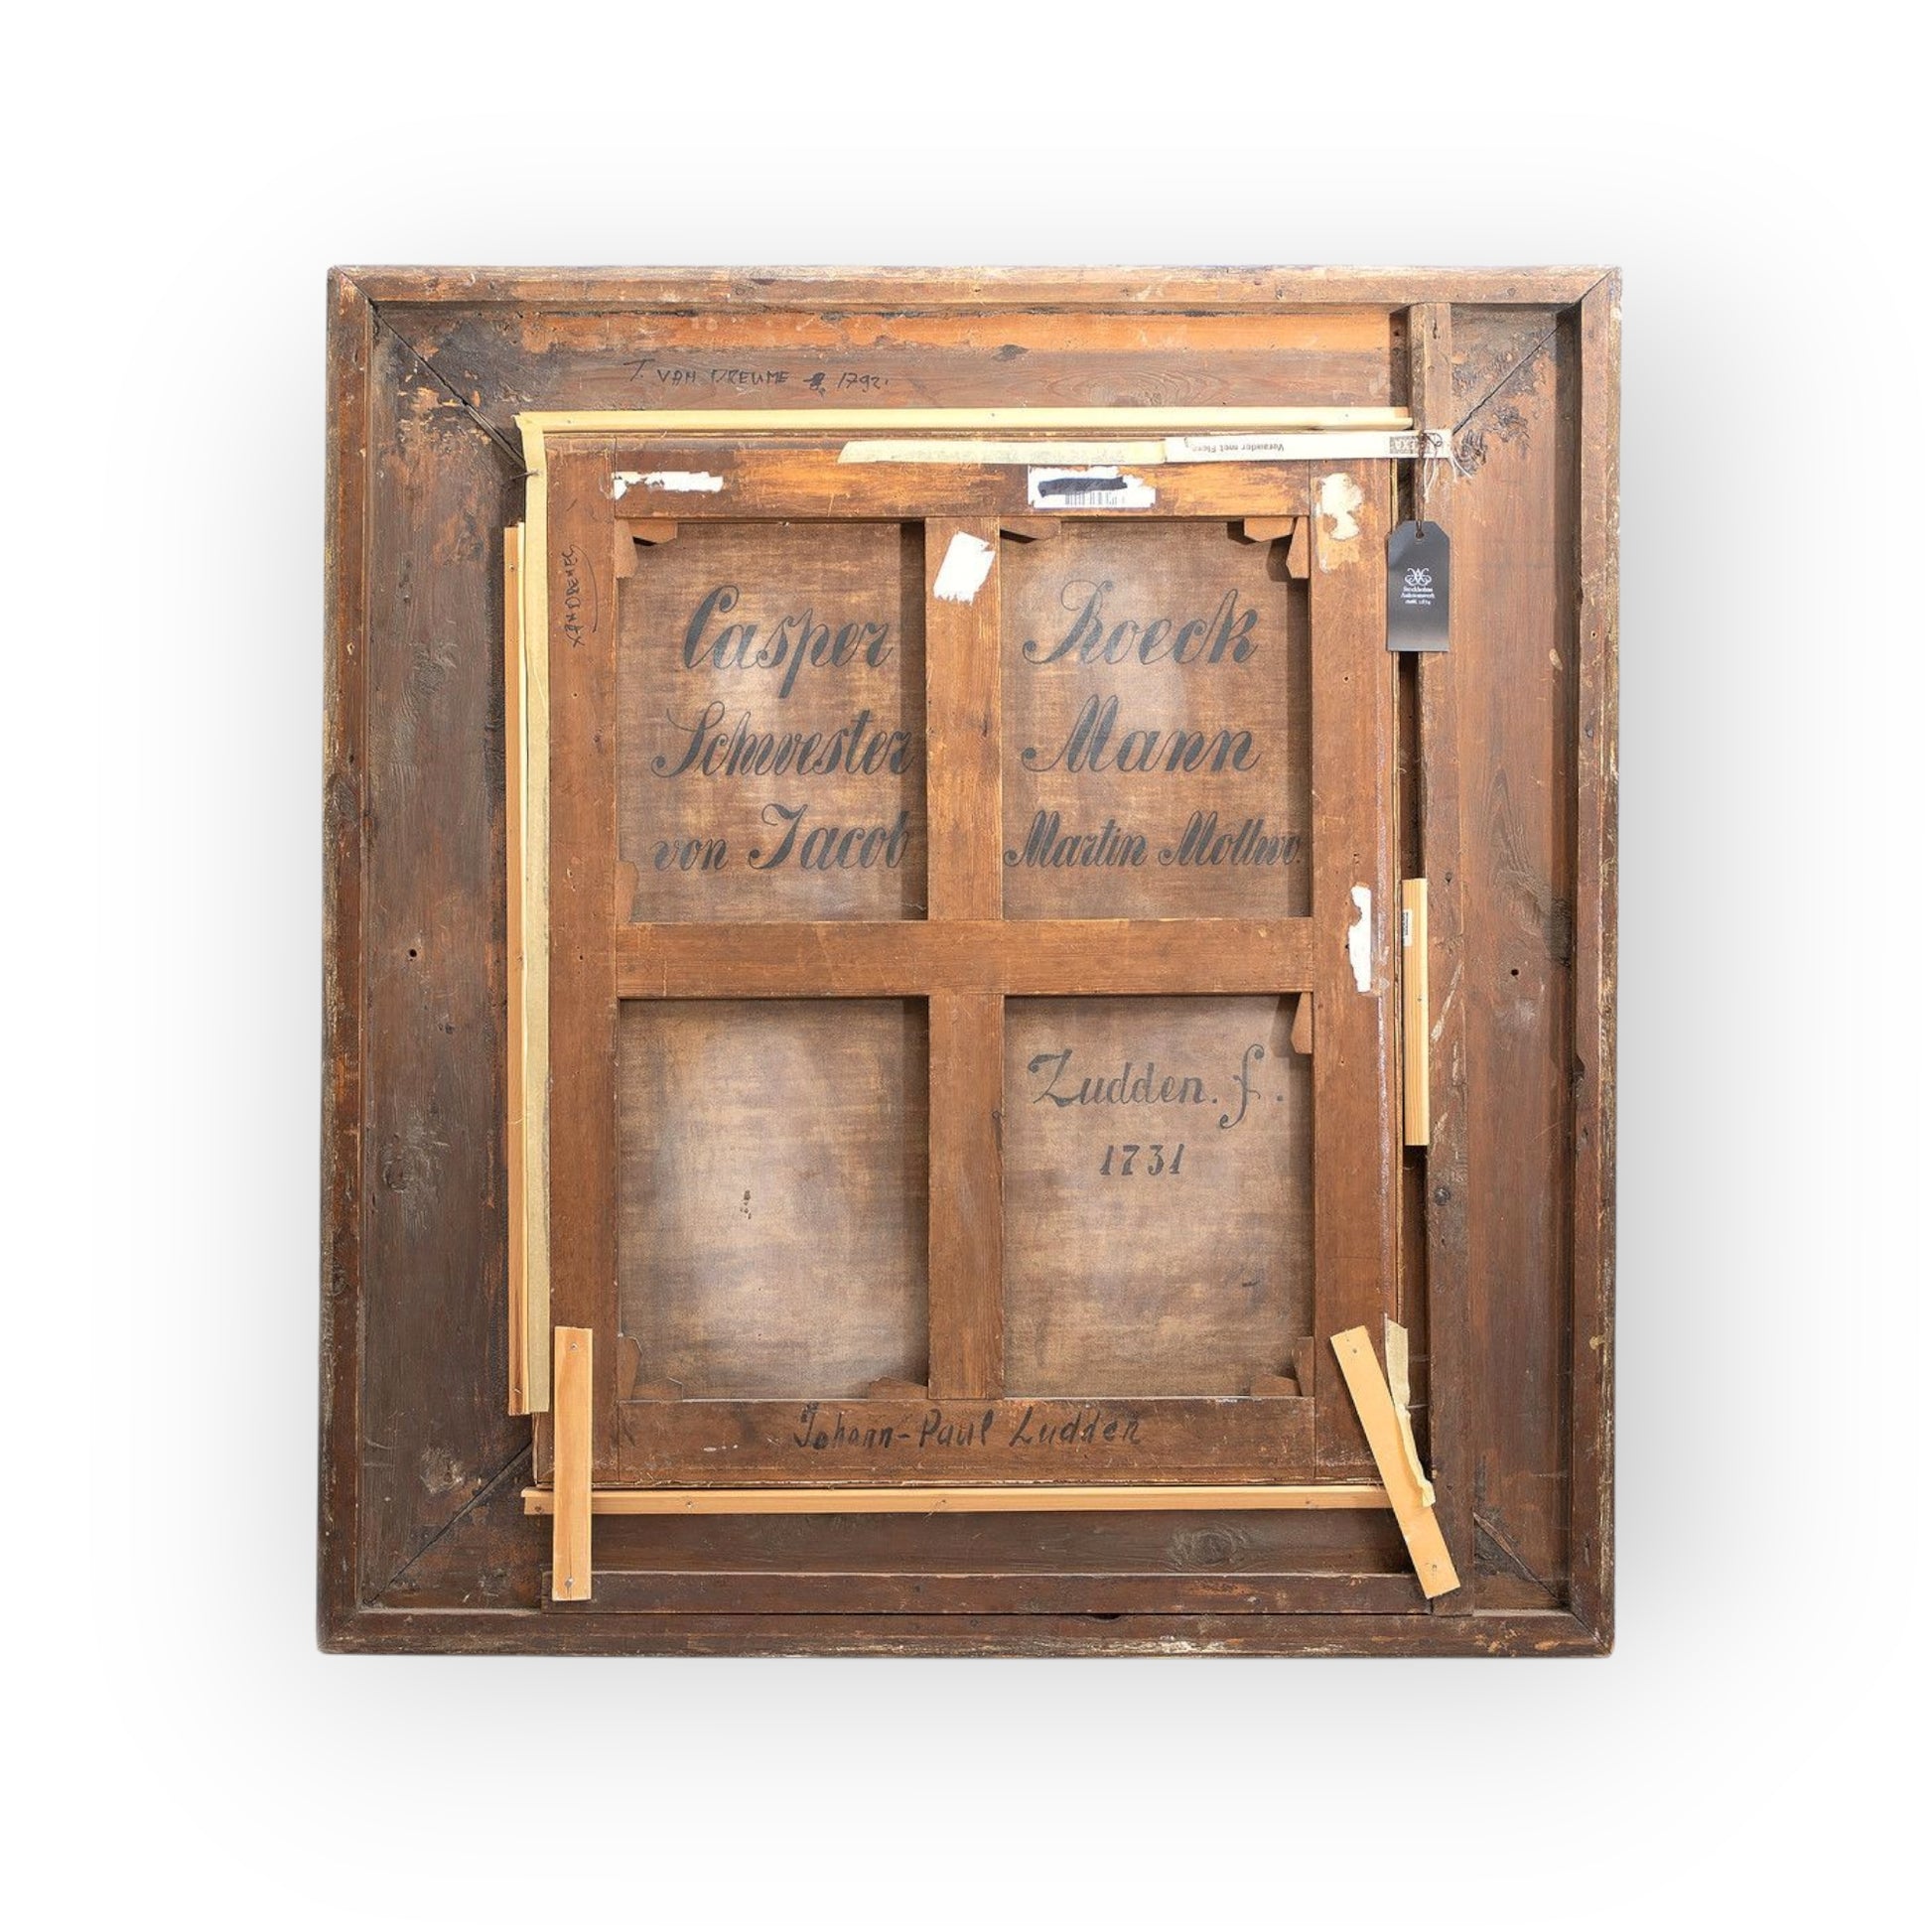 T. VAN DREUME 1792
Verander met Flexa
Casper Roeck
Schwester Mann
von Jacob Martin Mollwo.
Stockholms
Auktionsverk
Ludden. f.
1731
Johann-Paul Ludden